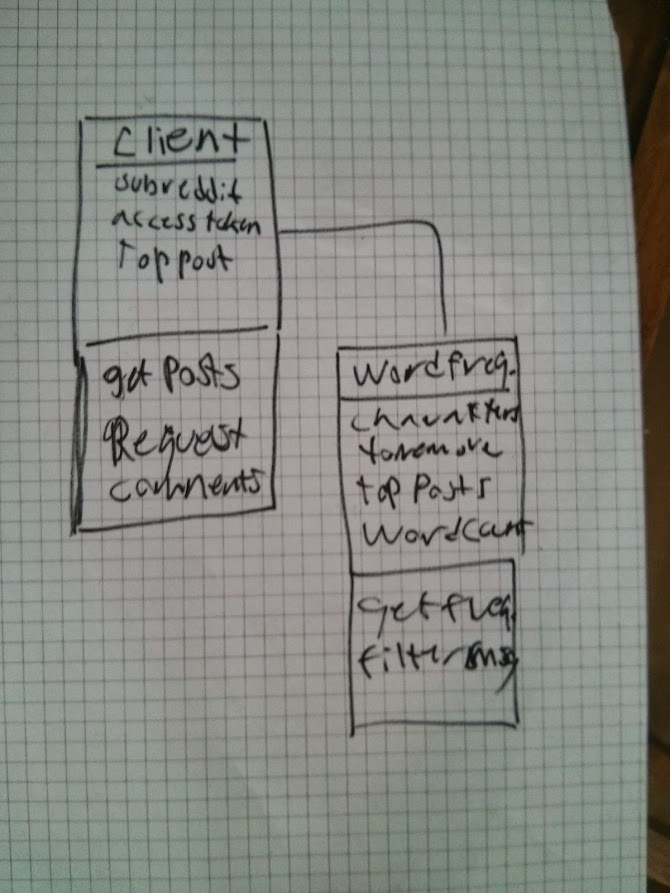 Client
subreddit
access token
Top post
get Posts
Request
comments
Wordfreq.
charakters
to remove
top Posts
Wordcount
getfreq.
filter msg